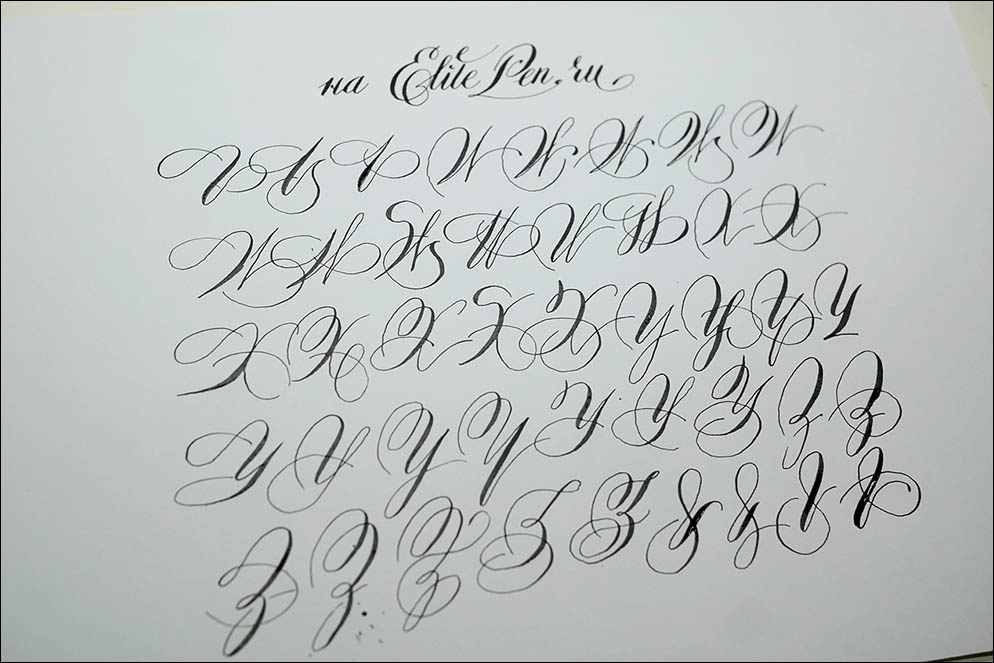 на ElitePen.ru.
V V V W W W W W
W W W W W W X X
X X X X X Y Y Y Y
Y Y Y Y Y Y Y Z Z
Z Z Z Z Z & & & &